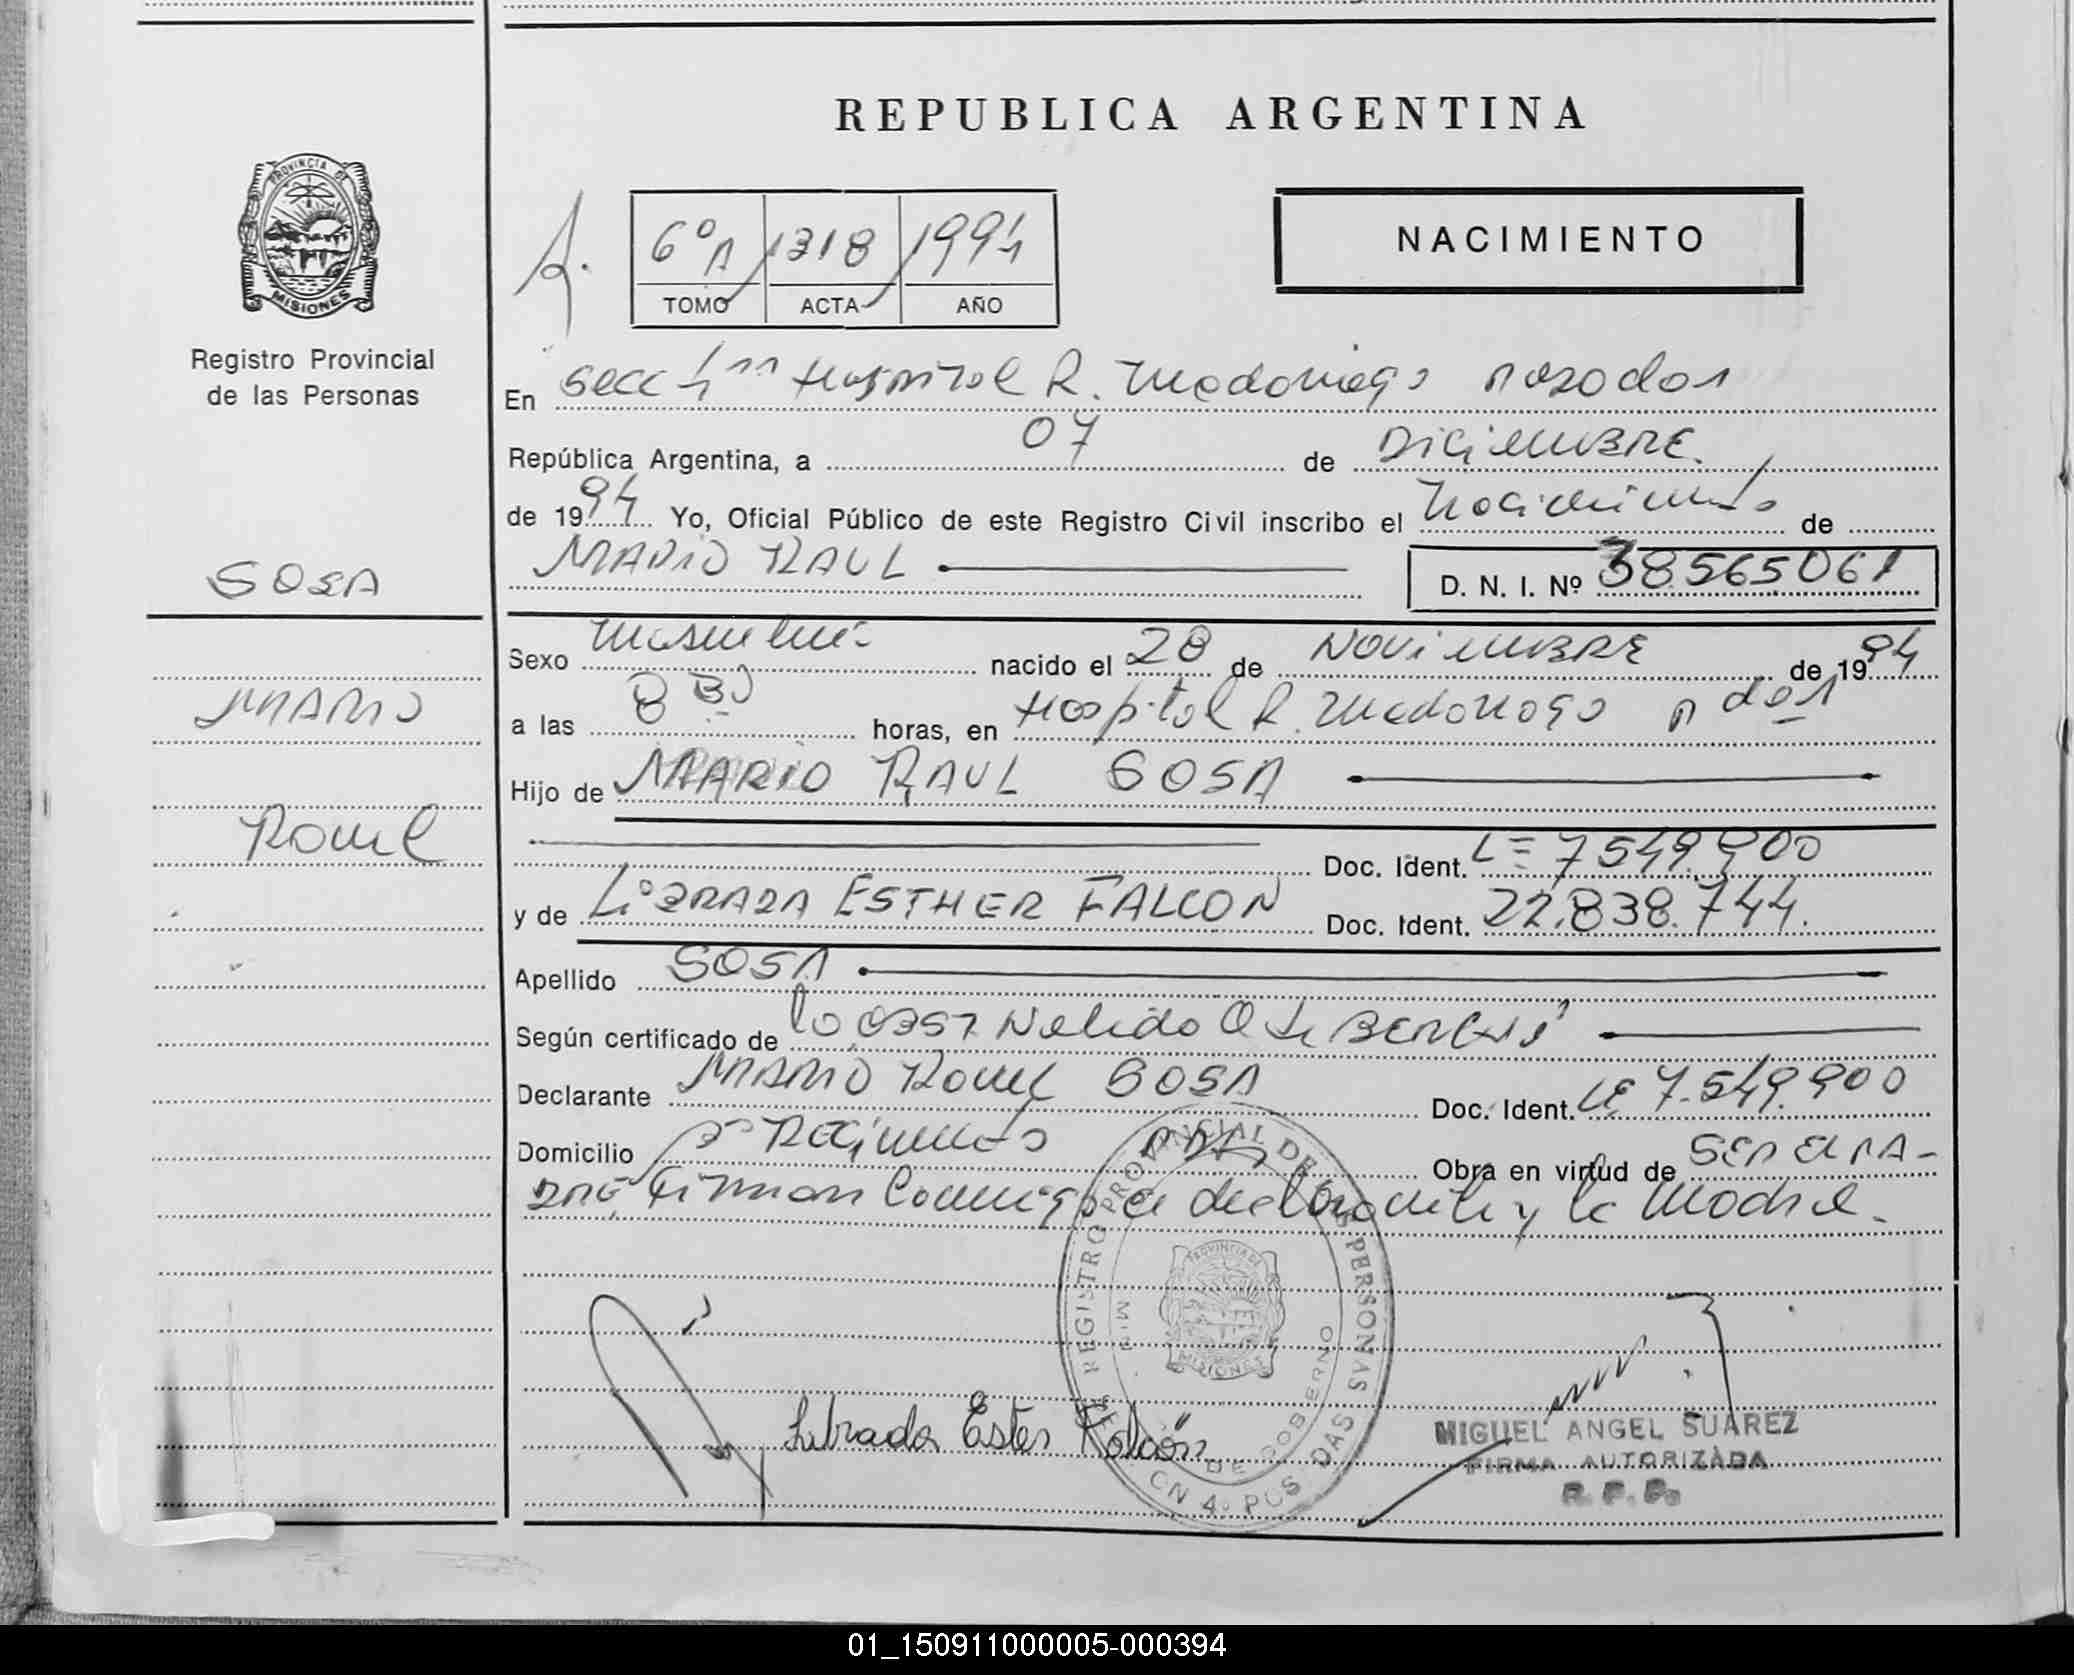 REPUBLICA ARGENTINA
PROVINCIA DE
MISIONES
Registro Provincial
de las Personas
6º A 1318 1994
TOMO ACTA AÑO
NACIMIENTO
En Secc 4ta Hospital R. Madariaga Posadas
República Argentina, a 07 de DiciEMBRE
de 1994 Yo, Oficial Público de este Registro Civil inscribo el Nacimiento de
MARIO RAUL
D. N. I. Nº 38565061
SOSA
MARIO
Raul
Sexo Masculino nacido el 28 de NOViEMBRE de 1994
a las 8 30 horas, en Hospital R. Madariaga P das
Hijo de MARIO RAUL SOSA
Doc. Ident. LE 7549.900
y de LiBRADA ESTHER FALCON Doc. Ident. 22.838.744.
Apellido SOSA
Según certificado de
Declarante MARIO Raul SOSA Doc. Ident. LE 7.549.900
Domicilio Obra en virtud de SER EL PA-
DRE Firman Conmigo el declarante y la Madre.
REGISTRO PROVINCIAL DE LAS PERSONAS
MISIONES
DE GOBERNO
CN 4º POSADAS
Librada Ester Falcón
MIGUEL ANGEL SUAREZ
FIRMA AUTORIZADA
R. P. P.
01_150911000005-000394